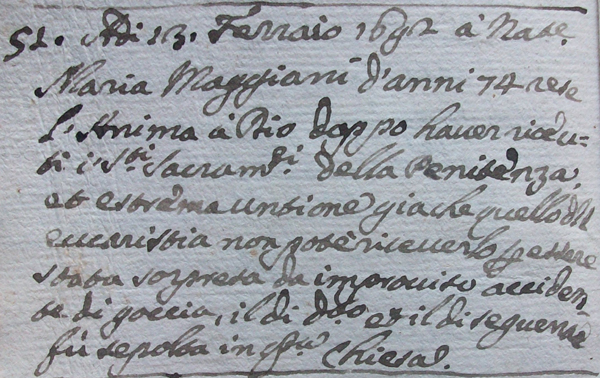 51. Adi 13. Ferraio 1692 à Nate.
Maria Maggiani d'anni 74 rese
l'Anima à Dio doppo haver ricevu-
ti i S.ti Sacram.ti della Penitenza,
et estrema untione giache quello dell
eucaristia non potè riceverlo p essere
stata sorpresa da improviso acciden-
te di goccia, il di d.to et il di seguente
fù sepolta in q.ta Chiesa.